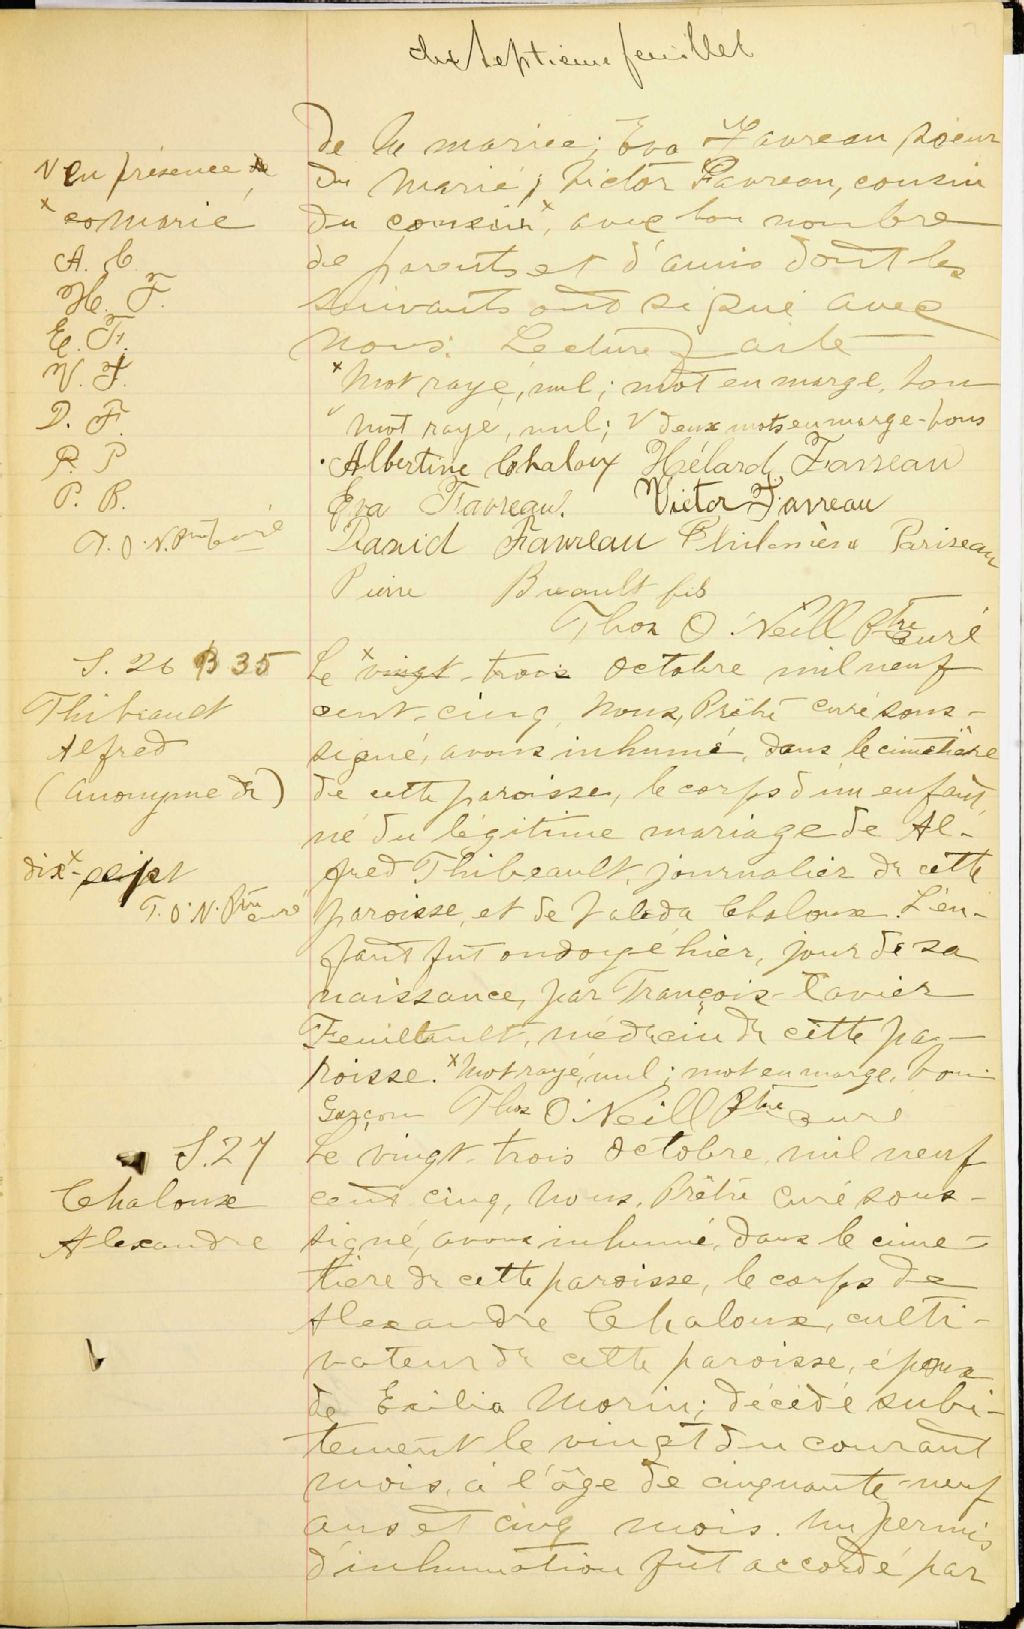 dix septieme feuillet
de la mariée; Eva Favreau soeur
du marié; Victor Favreau, cousin
du cousin x, avec bon nombre
de parents et d'amis dont les
suivants ont signé avec
nous. Lecture faite
x Mot rayé, nul; mot en marge, bon
mot rayé, nul; V deux mots en marge-bons
Albertine Chaloux Hélard Favreau
Eva Favreau. Victor Favreau
David Favreau Philomèse Pariseau
Pierre Breault fils
Thos O'Neill Ptre curé
V en présence de
x marié
A. C.
H. F.
E. F.
V. F.
D. F.
P. P
P. B.
T. O'N. Ptre curé
S. 26 B 35
Thibeault
Alfred
(anonyme de)
dix-x sept
T. O'N. Ptre curé
Le x vingt-trois octobre mil neuf
cent-cinq, Nous, Prêtre curé sous-
signé, avons inhumé, dans le cimetière
de cette paroisse, le corps d'un enfant,
né du légitime mariage de Al-
fred Thibeault, journalier de cette
paroisse, et de Valéda Chaloux. L'en-
fant fut ondoyé hier, jour de sa
naissance, par François-Xavier
Feuilltault, médecin de cette pa-
roisse. x Mot rayé, nul; mot en marge, bon
Garçon Thos O'Neill Ptre curé
S. 27
Chaloux
Alexandre
Le vingt-trois octobre, mil neuf
cent cinq, Nous, Prêtre Curé sous-
signé, avons inhumé, dans le cime-
tière de cette paroisse, le corps de
Alexandre Chaloux, culti-
vateur de cette paroisse, époux
de Exilia Morin; décédé subi-
tement le vingt du courant
mois, à l'âge de cinquante-neuf
ans et cinq mois. Un permis
d'inhumation fut accordé par